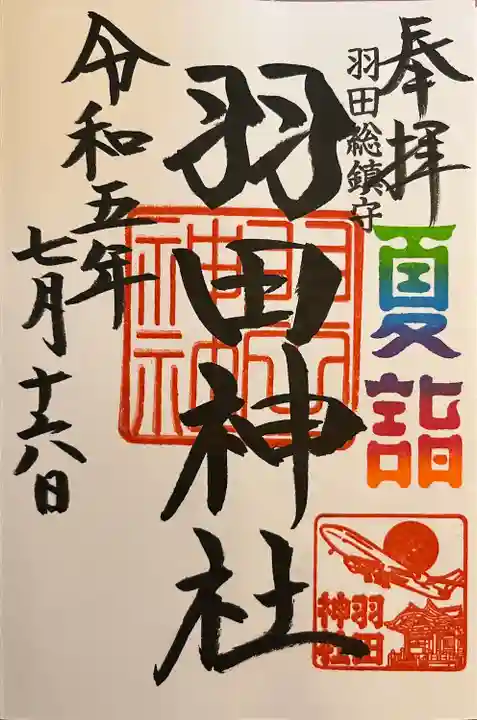 奉拝
羽田総鎮守
夏詣
羽田神社
羽田神社
令和五年
七月十六日
羽田
神社